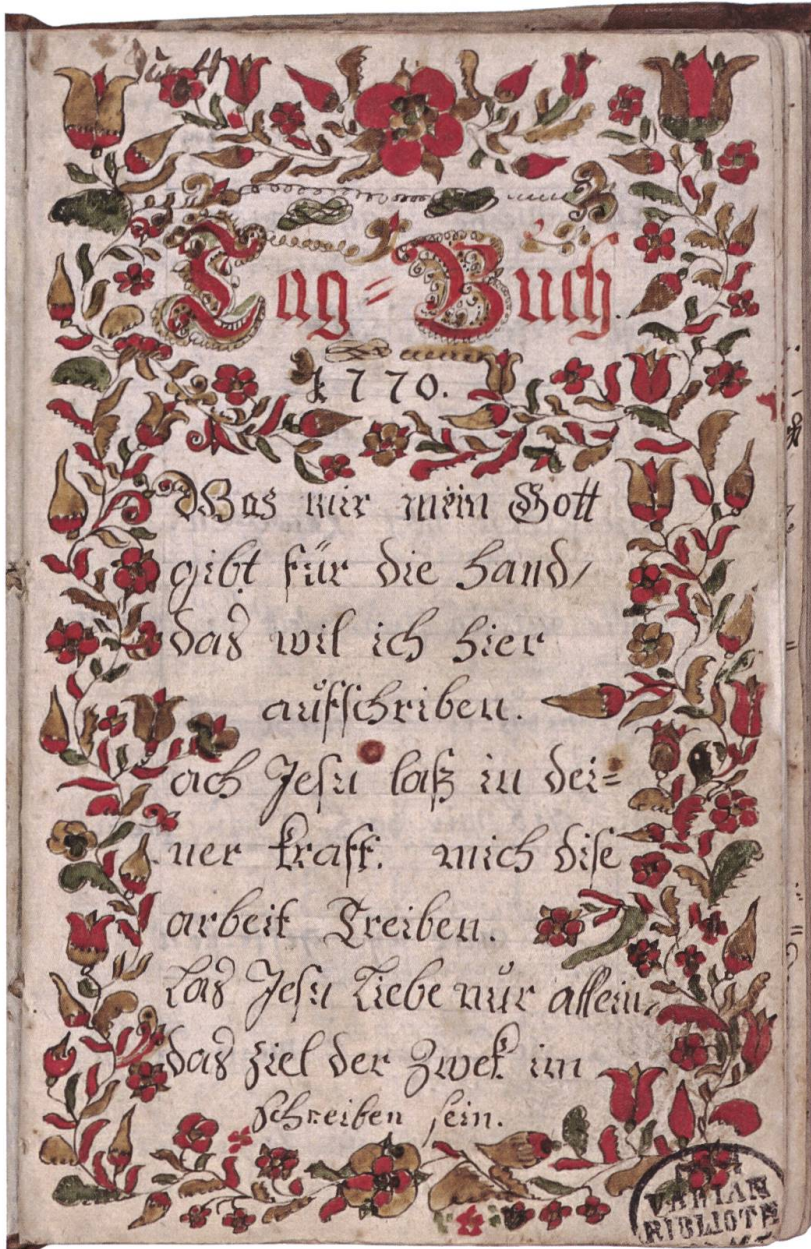 Tag=Buch.
1770.
Was mir mein Gott
gibt für die hand/
das wil ich hier
aufschriben.
ach Jesu laß in dei=
ner krafft. mich dise
arbeit Treiben.
Las Jesu Liebe nur allein,
das ziel der Zwek im
schreiben sein.
VADIAN
BIBLIOTH